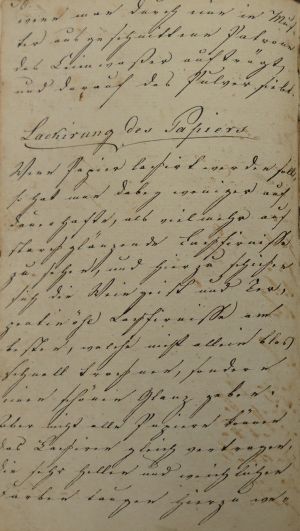 wenn man durch eine in Mus-
ter ausgeschnittene Patrone
das Leimwasser aufträgt,
und darauf das Pulver siebt.
Lackirung des Papiers
Wenn Papier lackirt werden soll,
so hat man dabey weniger auf
dauerhafte, als vielmehr auf
starkglänzende Lackfirnisse
zu sehen, und hierzu schicken
sich die Weingeist und Ter-
pentinöhl Lackfirnisse am
besten, welche nicht allein bald
schnell trocknen, sondern
einen schönen Glanz geben.
Aber nicht alle Papiere können
das Lackiren gleich vertragen,
die sehr hellen und weichlichen
Farben taugen hierzu we-